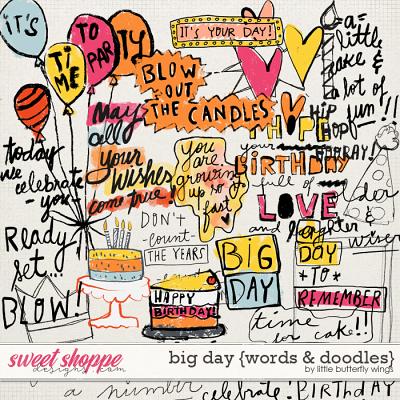 IT'S
TI
ME
TO
PAR
TY
IT'S YOUR DAY!
a
little
cake &
a lot of
fun!!
BLOW
OUT
THE CANDLES
HIP
HIP
HOORAY!
May
all
your
wishes
come true!
today
we celebrate
-you-
You
are
growing
up so
fast
I HOPE
your
BIRTHDAY
is
full of
LOVE
and laughter
older
and
wiser
DON'T
-count-
THE YEARS
count
Ready
set...
BLOW!
BIG
DAY
a
DAY
*TO*
REMEMBER
HAPPY
BIRTHDAY!
time
for cake!!
sweet shoppe
designs.com
big day {words & doodles}
by little butterfly wings
a number
celebrate!
BIRTHDAY